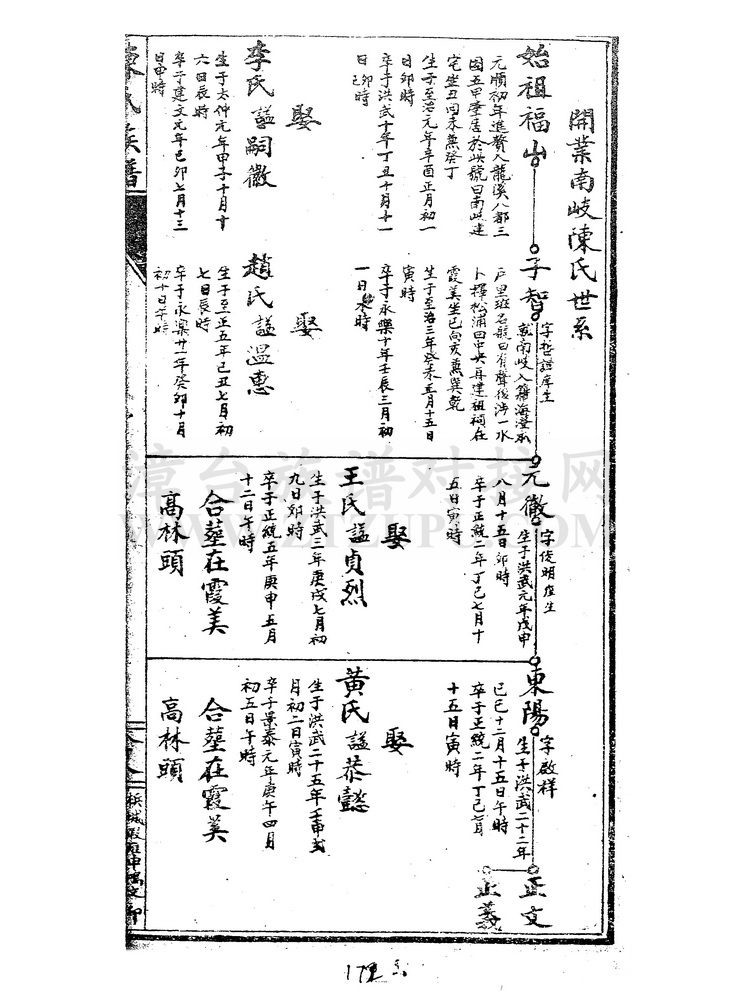 開業南岐陳氏世系
始祖福山
元順初年進贅入龍溪八都三
圖五甲肇居於此號曰南岐建
宅坐丑向未兼癸丁
生于至治元年辛酉正月初一
日卯時
卒于洪武十年丁巳十月十一
日卯時
娶
李氏謚嗣徽
六日辰時
卒于建文元年己卯七月十三
日申時
子智
字哲謚庠生
戶里班名號曰有聲後涉一水
卜擇松浦田中央再建祖祠在
霞美坐巳向亥兼巽乾
生于至治三年癸未五月十五日
寅時
卒于永樂十年壬辰三月初
一日未時
娶
趙氏謚溫惠
生于至正五年己丑七月初
七日辰時
卒于永樂廿一年癸卯十月
初十日午時
元徽
字俊明庠生
生于洪武元年戊申
八月十五日卯時
卒于正統二年丁己七月十
五日寅時
娶
王氏謚貞烈
生于洪武三年庚戌七月初
九日卯時
卒于正統五年庚申五月
十二日午時
合塟在霞美
高林頭
東陽
字啟祥
生于洪武二十二年
己巳十二月十五日午時
卒于正統二年丁己七月
十五日寅時
娶
黃氏謚恭懿
生于洪武二十五年壬申
月初二日寅時
卒于景泰元年庚午四月
初五日午時
合塟在霞美
高林頭
正文
正義
陳氏族譜
漳台族谱对接网
WWW.ZTZUPU.COM
172